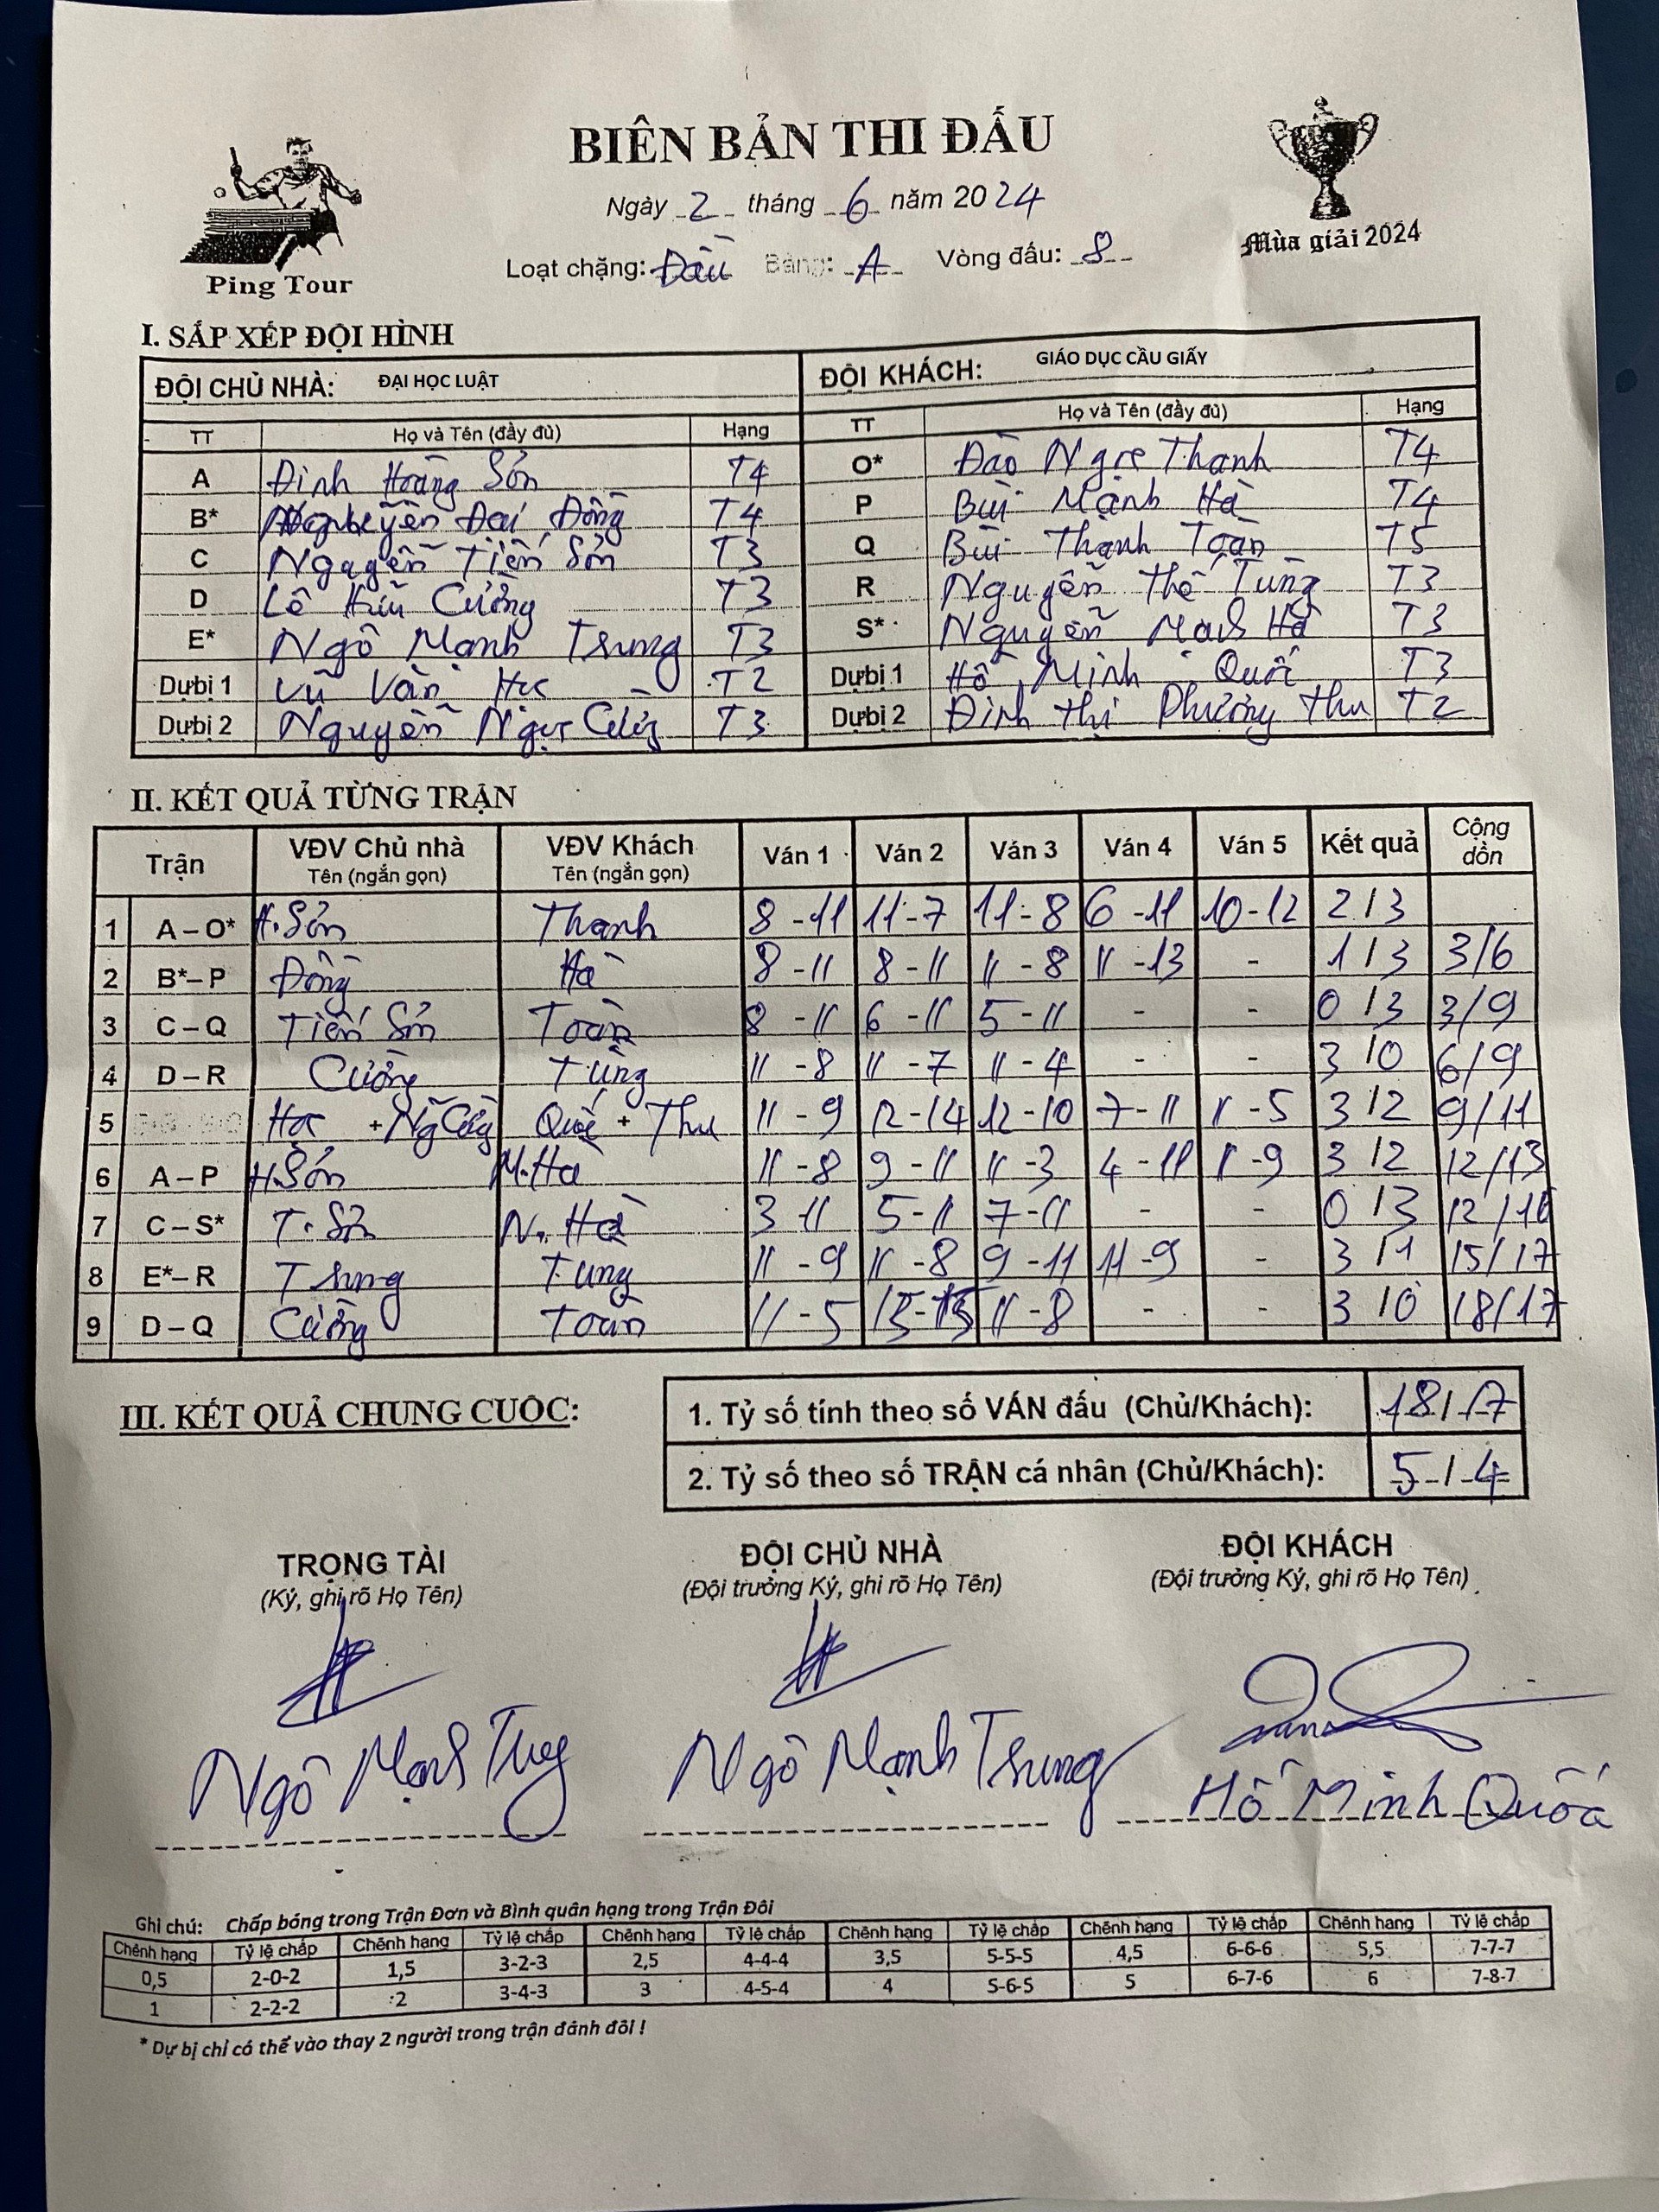 BIÊN BẢN THI ĐẤU
Ngày 2 tháng 6 năm 2024
Loạt chặng: Đầu Bảng: A Vòng đấu: 8
Ping Tour
Mùa giải 2024
I. SẮP XẾP ĐỘI HÌNH
ĐỘI CHỦ NHÀ: ĐẠI HỌC LUẬT ĐỘI KHÁCH: GIÁO DỤC CẦU GIẤY
TT Họ và Tên (đầy đủ) Hạng TT Họ và Tên (đầy đủ) Hạng
A Đinh Hoàng Sơn T4 O* Đào Ngọc Thanh T4
B* Nguyễn Đại Đồng T4 P Bùi Mạnh Hà T4
C Nguyễn Tiến Sơn T3 Q Bùi Thanh Toàn T5
D Lê Hữu Cường T3 R Nguyễn Thế Tùng T3
E* Ngô Mạnh Trung T3 S* Nguyễn Mạnh Hà T3
Dự bị 1 Vũ Văn Học T2 Dự bị 1 Hồ Minh Quốc T3
Dự bị 2 Nguyễn Ngọc T3 Dự bị 2 Đinh Thị Phương Thu T2
II. KẾT QUẢ TỪNG TRẬN
Trận VĐV Chủ nhà Tên (ngắn gọn) VĐV Khách Tên (ngắn gọn) Ván 1 Ván 2 Ván 3 Ván 4 Ván 5 Kết quả Cộng dồn
1 A – O* H.Sơn Thanh 8 - 11 11 - 7 11 - 8 6 - 11 10 - 12 2 / 3
2 B* – P Đồng Hà 8 - 11 8 - 11 11 - 8 11 - 13 - 1 / 3 3/6
3 C – Q Tiến Sơn Toàn 8 - 11 6 - 11 5 - 11 - - 0 / 3 3/9
4 D – R Cường Tùng 11 - 8 11 - 7 11 - 4 - - 3 / 0 6/9
5 Học + Quốc + Thu 11 - 9 12 - 14 12 - 10 7 - 11 11 - 5 3 / 2 9/11
6 A – P H.Sơn M.Hà 11 - 8 9 - 11 11 - 3 4 - 11 11 - 9 3 / 2 12/13
7 C – S* T.Sơn N.Hà 3 - 11 5 - 11 7 - 11 - - 0 / 3 12/16
8 E* – R Trung Tùng 11 - 9 11 - 8 9 - 11 11 - 9 - 3 / 1 15/17
9 D – Q Cường Toàn 11 - 5 11 - 8 - - 3 / 0 18/17
III. KẾT QUẢ CHUNG CUỘC:
1. Tỷ số tính theo số VÁN đấu (Chủ/Khách): 18/17
2. Tỷ số theo số TRẬN cá nhân (Chủ/Khách): 5 / 4
TRỌNG TÀI ĐỘI CHỦ NHÀ ĐỘI KHÁCH
(Ký, ghi rõ Họ Tên) (Đội trưởng Ký, ghi rõ Họ Tên) (Đội trưởng Ký, ghi rõ Họ Tên)
Ngô Mạnh Trung Ngô Mạnh Trung Hồ Minh Quốc
Ghi chú: Chấp bóng trong Trận Đơn và Bình quân hạng trong Trận Đôi
Chênh hạng Tỷ lệ chấp Chênh hạng Tỷ lệ chấp Chênh hạng Tỷ lệ chấp Chênh hạng Tỷ lệ chấp Chênh hạng Tỷ lệ chấp Chênh hạng Tỷ lệ chấp
0,5 2-0-2 1,5 3-2-3 2,5 4-4-4 3,5 5-5-5 4,5 6-6-6 5,5 7-7-7
1 2-2-2 2 3-4-3 3 4-5-4 4 5-6-5 5 6-7-6 6 7-8-7
* Dự bị chỉ có thể vào thay 2 người trong trận đánh đôi !